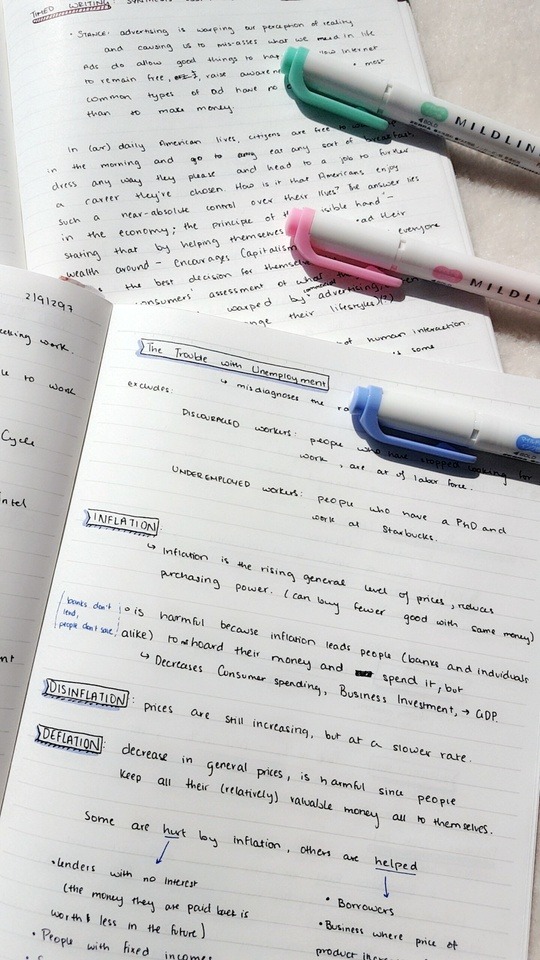 TIMED WRITING:
• STANCE: advertising is warping our perception of reality
and causing us to mis-asses what we need in life
Ads do allow good things to internet
to remain free, raise • most
common types of ad have no
than to make money.
In (our) daily American lives, citizens are free to
in the morning and go to eat any sort of breakfast,
dress any way they please and head to a job to further
a career they've chosen. How is it that Americans enjoy
such a near-absolute control over their lives? The answer lies
in the economy; the principle of hand" –
stating that by helping themselves •ad their
wealth around – encourages Capitalism everyone
the best decision for
consumers' assessment of what
warped by advertising,
their lifestyles)(?)
of human interaction.
some
2/9/2
work.
to work
Cycle
The Trouble with Unemployment
↳ misdiagnoses the
excludes:
DISCOURAGED workers: people who have stopped looking for
work, are out of labor force.
UNDEREMPLOYED workers: people who have a PhD and
work at Starbucks.
INFLATION:
↳ Inflation is the rising general level of prices, reduces
purchasing power. (can buy fewer good with same money)
banks don't
lend,
people don't save
◦ is harmful because inflation leads people (banks and individuals
alike) to hoard their money and spend it, but
↳ Decreases Consumer spending, Business Investment, → GDP.
DISINFLATION: prices are still increasing, but at a slower rate.
DEFLATION: decrease in general prices, is harmful since people
keep all their (relatively) valuable money all to themselves.
Some are hurt by inflation, others are helped
• Lenders with no interest
(the money they are paid back is
worth less in the future)
• People with fixed incomes
• Borrowers
• Business where price of
product
MILDLINER
MILDLINER